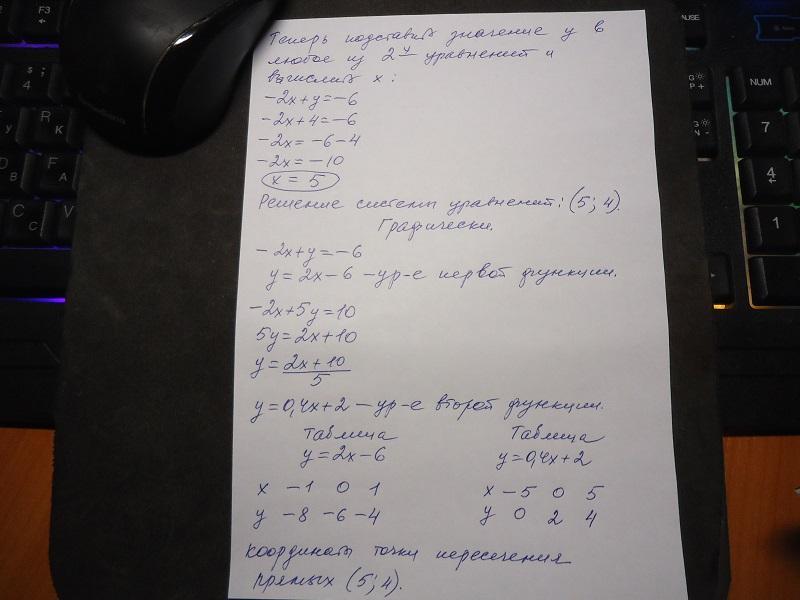 Теперь подставим значение y в
любое из 2х уравнений и
вычислим x:
-2x+y=-6
-2x+4=-6
-2x= -6-4
-2x= -10
x = 5
Решение системы уравнений: (5; 4).
Графически.
-2x+y=-6
y=2x-6 -ур-е первой функции.
-2x+5y=10
5y=2x+10
y= 2x+10
5
y=0,4x+2 -ур-е второй функции.
Таблица Таблица
y=2x-6 y=0,4x+2
x -1 0 1 x -5 0 5
y -8 -6 -4 y 0 2 4
Координаты точки пересечения
прямых (5; 4).
F3
R К
D В
F А
C С
V
NUM
7
4
1